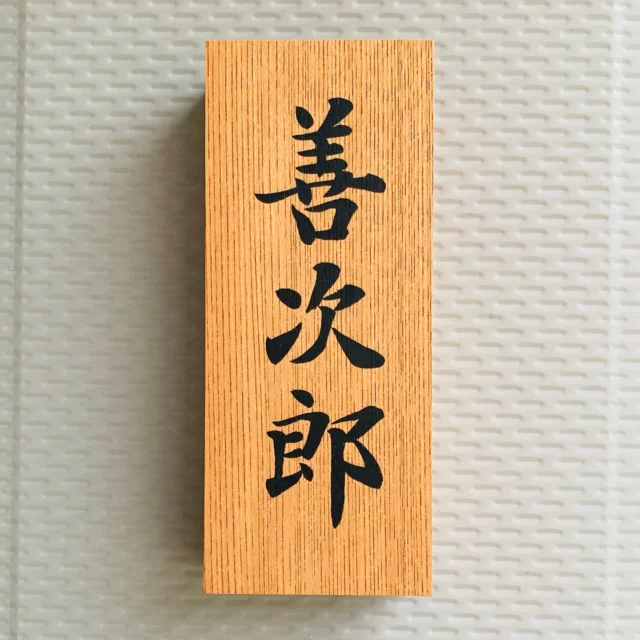 善次郎